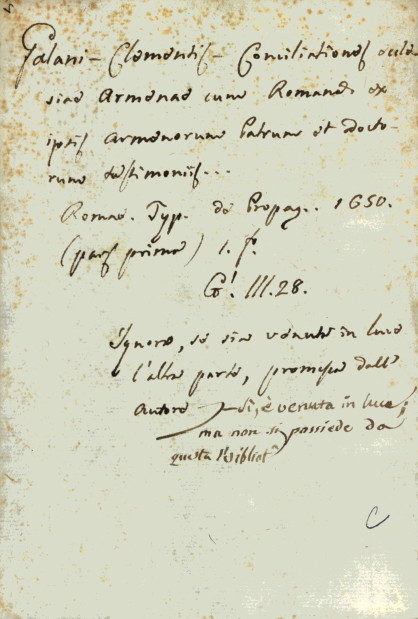 Galani - Clementis - Conciliationes eccle-
siae Armenae cum Romana ex
ipsis Armenorum Patrum et docto-
rum testimoniis...
Romae. Typ. de Propag.. 1650.
(pars prima) 1. f.º
G! III.28.
Ignoro, se sia venuta in luce
l'altra parte, promessa dall'
autore si, è venuta in luce,
ma non si possiede da
questa Bibliotª
C